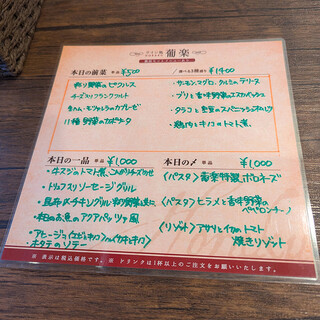 葡楽
本日の前菜 単品 ¥500
彩り野菜のピクルス
チーズ入りフランクフルト
生ハム・モッツァラのカプレーゼ
11種野菜のカポナータ
¥1400
・サーモン、マグロ、クルミのテリーヌ
・ブリと香味野菜のエスカベッシュ
・タラコと里芋のスパニッシュオムレツ
・鶏肉とキノコのトマト煮
本日の一品 単品 ¥1,000
・牛スジのトマト煮、こんがりチーズのせ
・トルコフスソーセージグリル
・骨付チキングリル 彩り野菜添え
・本日のお魚のアクアパッツァ風
・アヒージョ
・ホタテのソテー
本日の〆 単品 ¥1,000
〈パスタ〉葡楽特選ボロネーズ
〈パスタ〉ヒラメと香味野菜の
ペペロンチーノ
〈リゾット〉アサリとイカのトマト
焼きリゾット
※ 表示は税込価格です。 ※ ドリンクは1杯以上のご注文をお願いいたします。